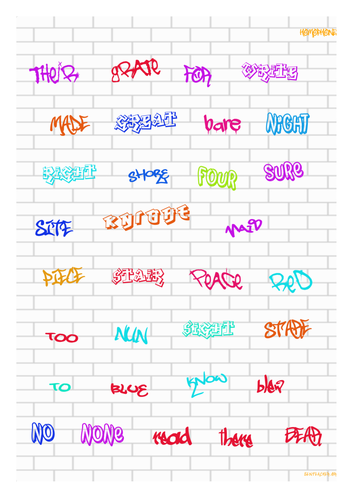 THEIR GRATE FOR WRITE
MADE GREAT bare NIGHT
RIGHT SHORE FOUR SURE
SITE KNIGHT MAID
PIECE STAIR PEACE RED
TOO NUN SIGHT STARE
TO BLUE KNOW blew
NO NONE read there BEAR